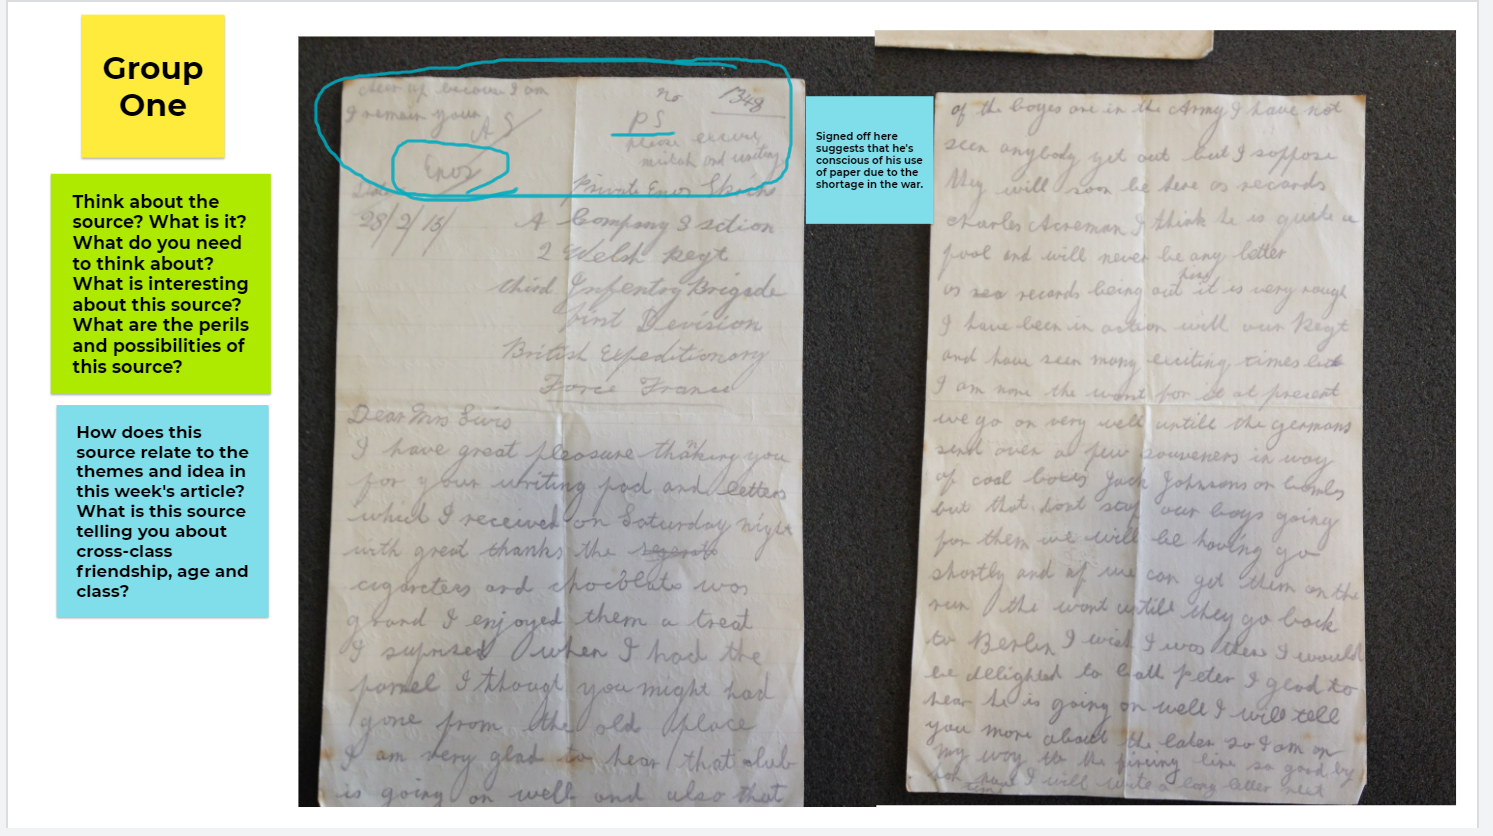 Group
One
Think about the
source? What is it?
What do you need
to think about?
What is interesting
about this source?
What are the perils
and possibilities of
this source?
How does this
source relate to the
themes and idea in
this week's article?
What is this source
telling you about
cross-class
friendship, age and
class?
cheer up because I am
I remain your
A S
Enos
no 1348
PS
please excuse
mistak and writing
Date
28/2/15/
Private Enos
A Company 3 section
2 Welsh Regt
third Infentry Brigade
first Devision
British Expeditionary
Force France
Dear Mrs
I have great pleasure thanking you
for your writing pad and letters
which I received on Saturday night
with great thanks the
cigareters and chocolate was
grand I enjoyed them a treat
I suprised when I had the
parsel I though you might had
gone from the old place
I am very glad to hear that club
is going on well and also that
Signed off here
suggests that he's
conscious of his use
of paper due to the
shortage in the war.
of the boyes are in the Army I have not
seen anybody yet out but I suppose
they will soon be here as records
Charles Acreman I think he is quite a
fool and will never be any better
as records being out it is very rough
I have been in action with our Regt
and have seen many exciting times but
I am none the worst for it at present
we go on very well untill the germans
send over a few souveners in way
of coal boxes Jack Johnsons or bombs
but that dont stop our boys going
for them we will be having go
shortly and if we can get them on the
run the wont untill they go back
to Berlin I wish I was there I would
be delighted to Peter I glad to
hear he is going on well I will tell
you more about the later so I am on
my way to the fireing line so good by
for I will write a long letter next
time